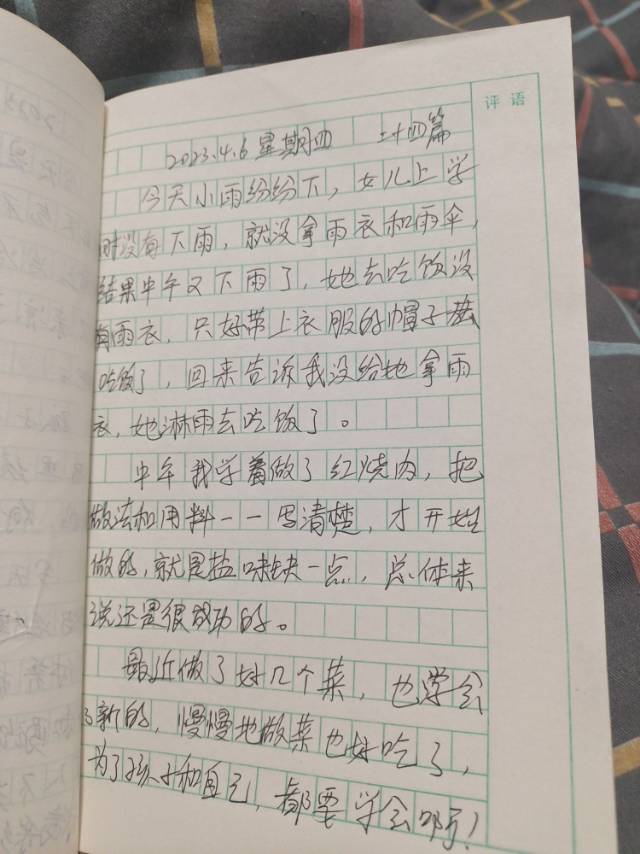 评语
2023.4.6 星期四 二十四篇
今天小雨纷纷下，女儿上学
时没有下雨，就没拿雨衣和雨伞，
结果中午又下雨了，她去吃饭没
有雨衣，只好带上衣服的帽子去
吃饭了，回来告诉我没给她拿雨
衣，她淋雨去吃饭了。
中午我学着做了红烧肉，把
做法和用料一一写清楚，才开始
做的，就是盐味缺一点，总体来
说还是很成功的。
最近做了好几个菜，也学会
了新的，慢慢地做菜也好吃了，
为了孩子和自己，都要学会啊！